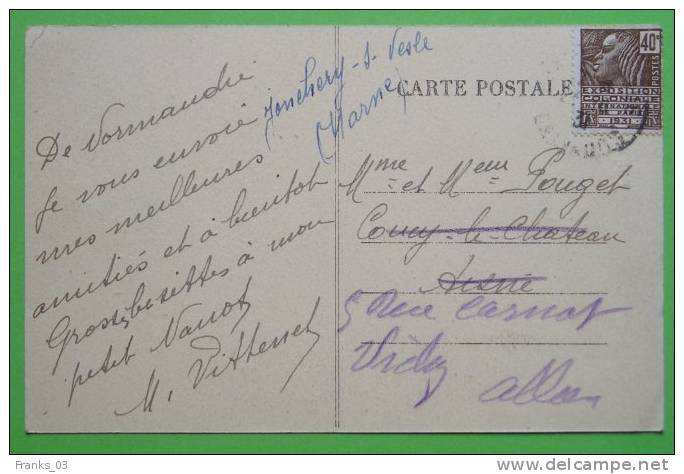 De Normandie
Je vous envoie
mes meilleures
amitiés et à bientôt
Grosses bisettes à mon
petit Nanot
M.
Jonchery-s-Vesle
(Marne)
CARTE POSTALE
40c
POSTES
EXPOSITION
COLONIALE
INTERNATIONALE
PARIS
1931
Mme et Meur Pouget
Coucy-le-Chateau
Aisne
5 Rue Carnot
Vichy
Allier
Franks_03
www.delcampe.net